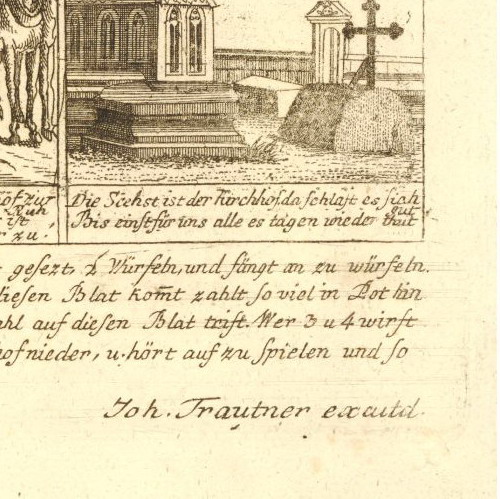 of zur
Ruh
ist,
r zu.
Die Sechst ist der Kirchhof da schlaft es sich
gut
Bis einst für uns alle es tagen wieder thut
gesezt, 2 Würfeln, und fängt an zu würfeln.
diesen Blat kom̅t zahlt so viel in Pot hin
ahl auf diesen Blat trift. Wer 3 u 4 wirft
hof nieder, u. hört auf zu spielen und so
Joh. Trautner excutd.